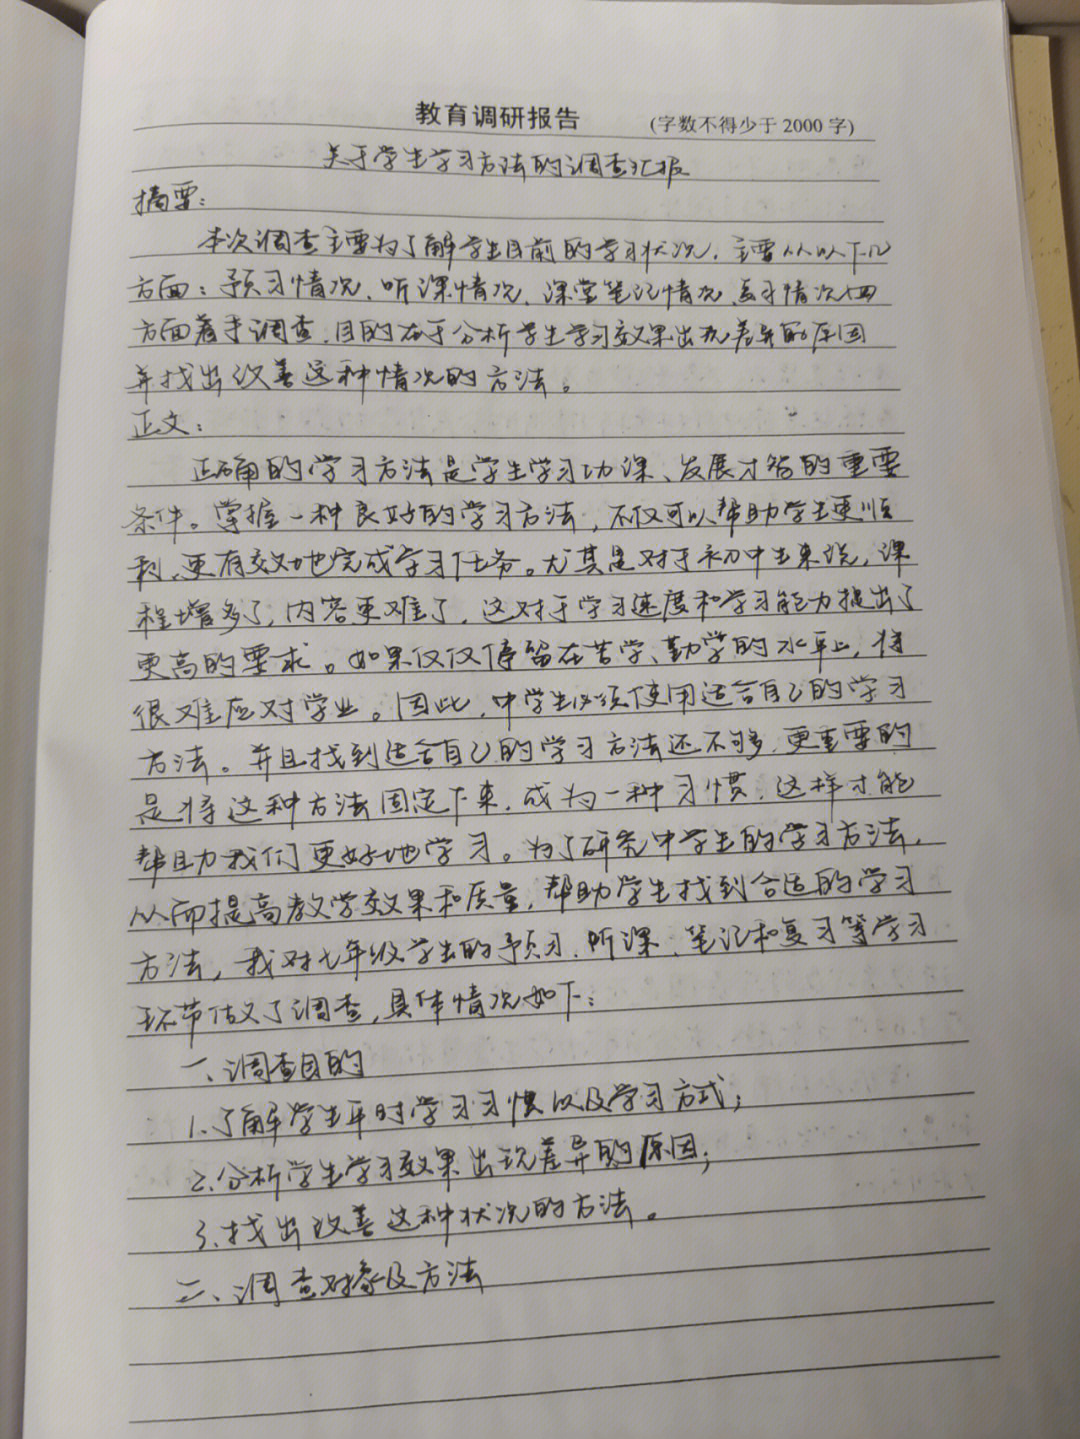 教育调研报告 (字数不得少于2000字)
关于学生学习方法的调查汇报
摘要：
本次调查主要为了解学生目前的学习状况，主要从以下几
方面：预习情况、听课情况、课堂笔记情况、复习情况四
方面着手调查，目的在于分析学生学习效果出现差异的原因
并找出改善这种情况的方法。
正文：
正确的学习方法是学生学习功课、发展才智的重要
条件。掌握一种良好的学习方法，不仅可以帮助学生更顺
利、更有效地完成学习任务。尤其是对于初中生来说，课
程增多了，内容更难了，这对于学习速度和学习能力提出了
更高的要求。如果仅仅停留在苦学、勤学的水平上，将
很难应对学业。因此，中学生必须使用适合自己的学习
方法。并且找到适合自己的学习方法还不够，更重要的
是将这种方法固定下来，成为一种习惯，这样才能
帮助我们更好地学习。为了研究中学生的学习方法，
从而提高教学效果和质量，帮助学生找到合适的学习
方法，我对七年级学生的预习、听课、笔记和复习等学习
环节做了调查，具体情况如下：
一、调查目的
1.了解学生平时学习习惯以及学习方式；
2.分析学生学习效果出现差异的原因；
3.找出改善这种状况的方法。
二、调查对象及方法